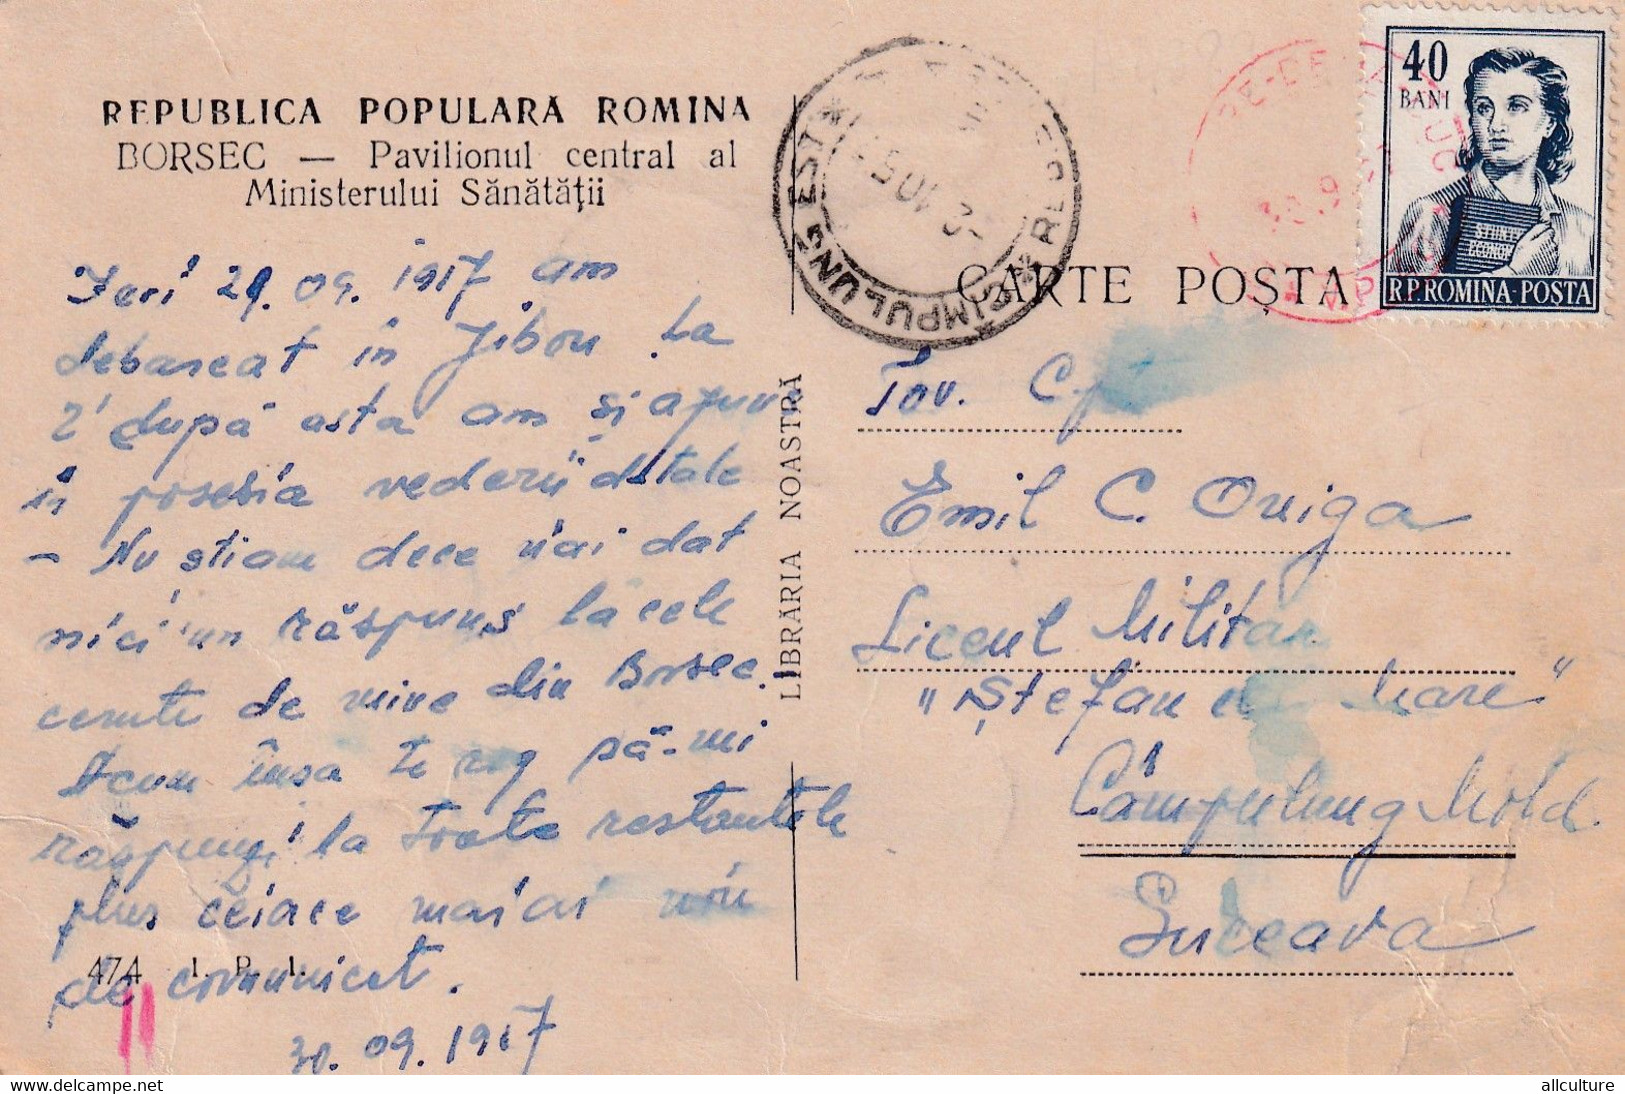 REPUBLICA POPULARĂ ROMINA
BORSEC — Pavilionul central al
Ministerului Sănătății
Ieri 29.09.1957 am
debarcat în Jibou. La
2 după asta am și ajuns
în posesia vederii dtale
- Nu știam dece n'ai dat
nici un răspuns la cele
cerute de mine din Borsec.
Acum însă te rog să-mi
răspunzi la toate restantele
plus ceiace mai ai nou
de comunicat.
474 I. P. I.
30.09.1957
LIBRĂRIA NOASTRĂ
CÎMPULUNG EST
CARTE POȘTA
40
BANI
R.P.ROMINA-POSTA
Tov. Cpt
Emil C. Oniga
Liceul Militar
"Ștefan cel Mare"
Câmpulung Mold.
Suceava
allculture